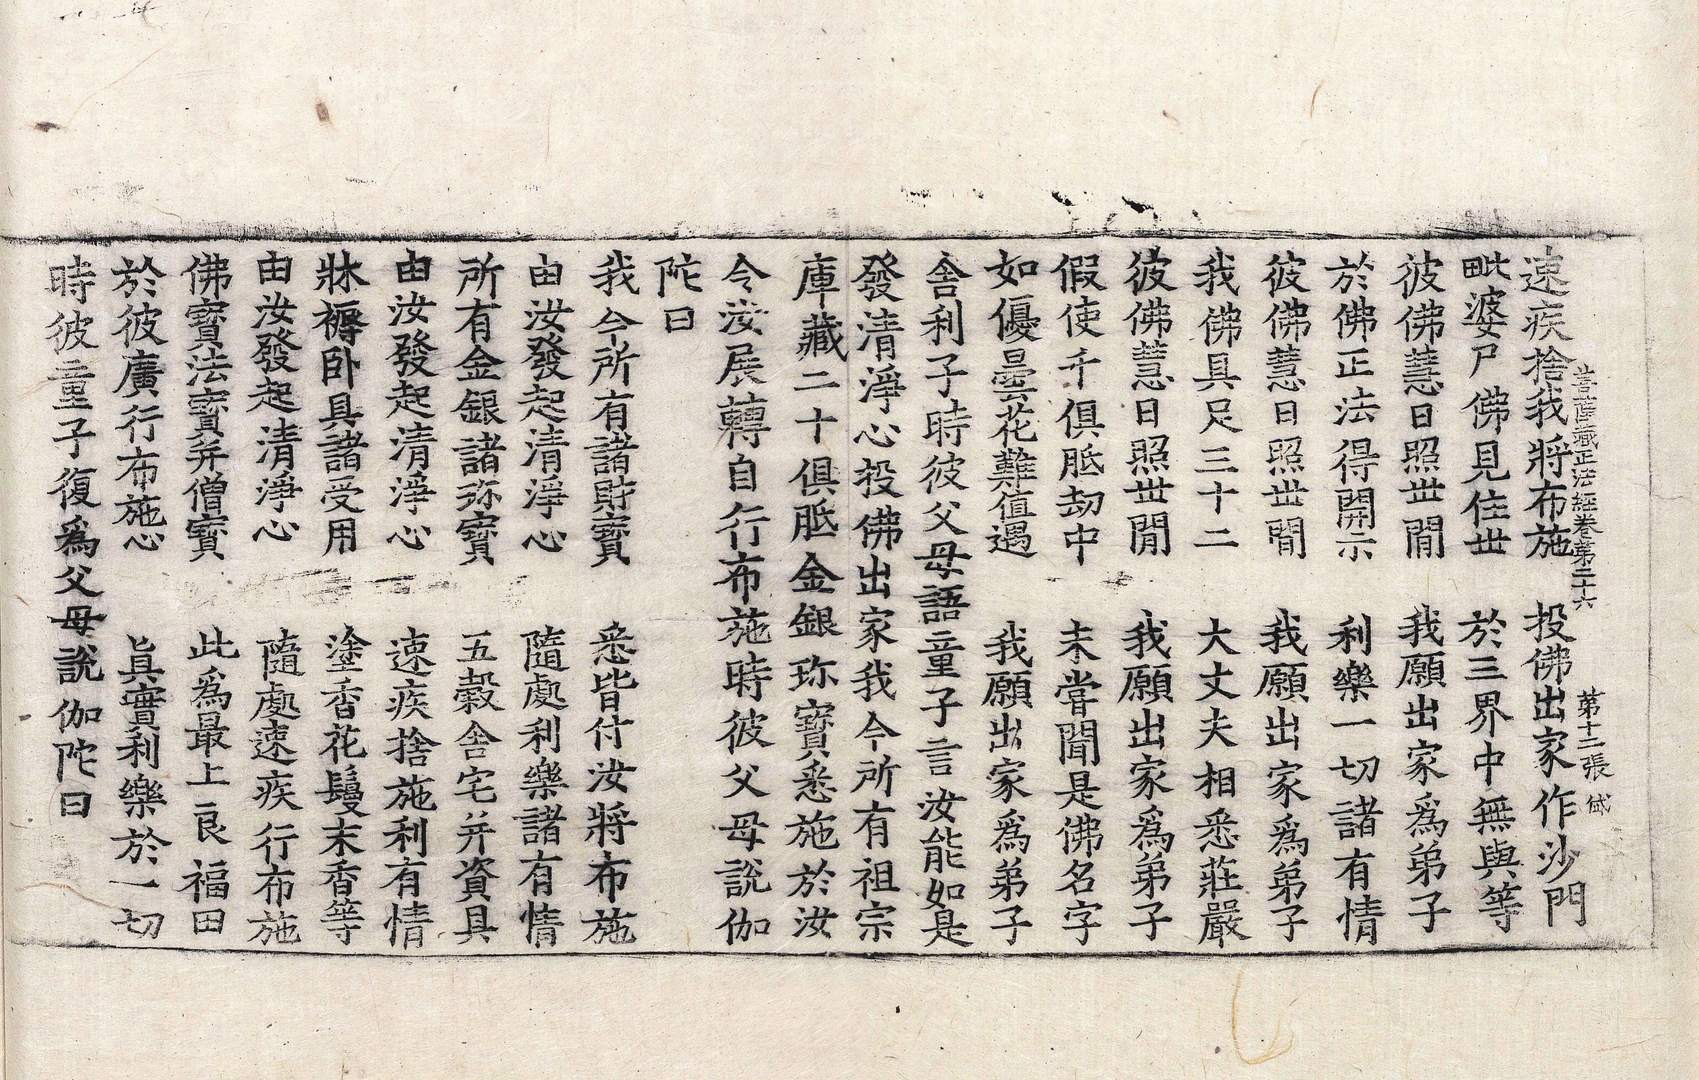 菩薩藏正法經卷第三十六　第十二張　弑
速疾捨我將布施　投佛出家作沙門
毗婆尸佛見住世　於三界中無與等
彼佛慧日照世閒　我願出家爲弟子
於佛正法得開示　利樂一切諸有情
彼佛慧日照世閒　我願出家爲弟子
我佛具足三十二　大丈夫相悉莊嚴
彼佛慧日照世閒　我願出家爲弟子
假使千俱胝劫中　未嘗聞是佛名字
如優曇花難值遇　我願出家爲弟子
舍利子時彼父母語童子言汝能如是
發清淨心投佛出家我今所有祖宗
庫藏二十俱胝金銀珎寶悉施於汝
令汝展轉自行布施時彼父母說伽
陁曰
我今所有諸財寶　悉皆付汝將布施
由汝發起清淨心　隨處利樂諸有情
所有金銀諸珎寶　五穀舍宅并資具
由汝發起清淨心　速疾捨施利有情
牀褥卧具諸受用　塗香花鬘末香等
由汝發起清淨心　隨處速疾行布施
佛寶法寶并僧寶　此爲最上良福田
於彼廣行布施心　眞實利樂於一切
時彼童子復爲父母說伽陁曰